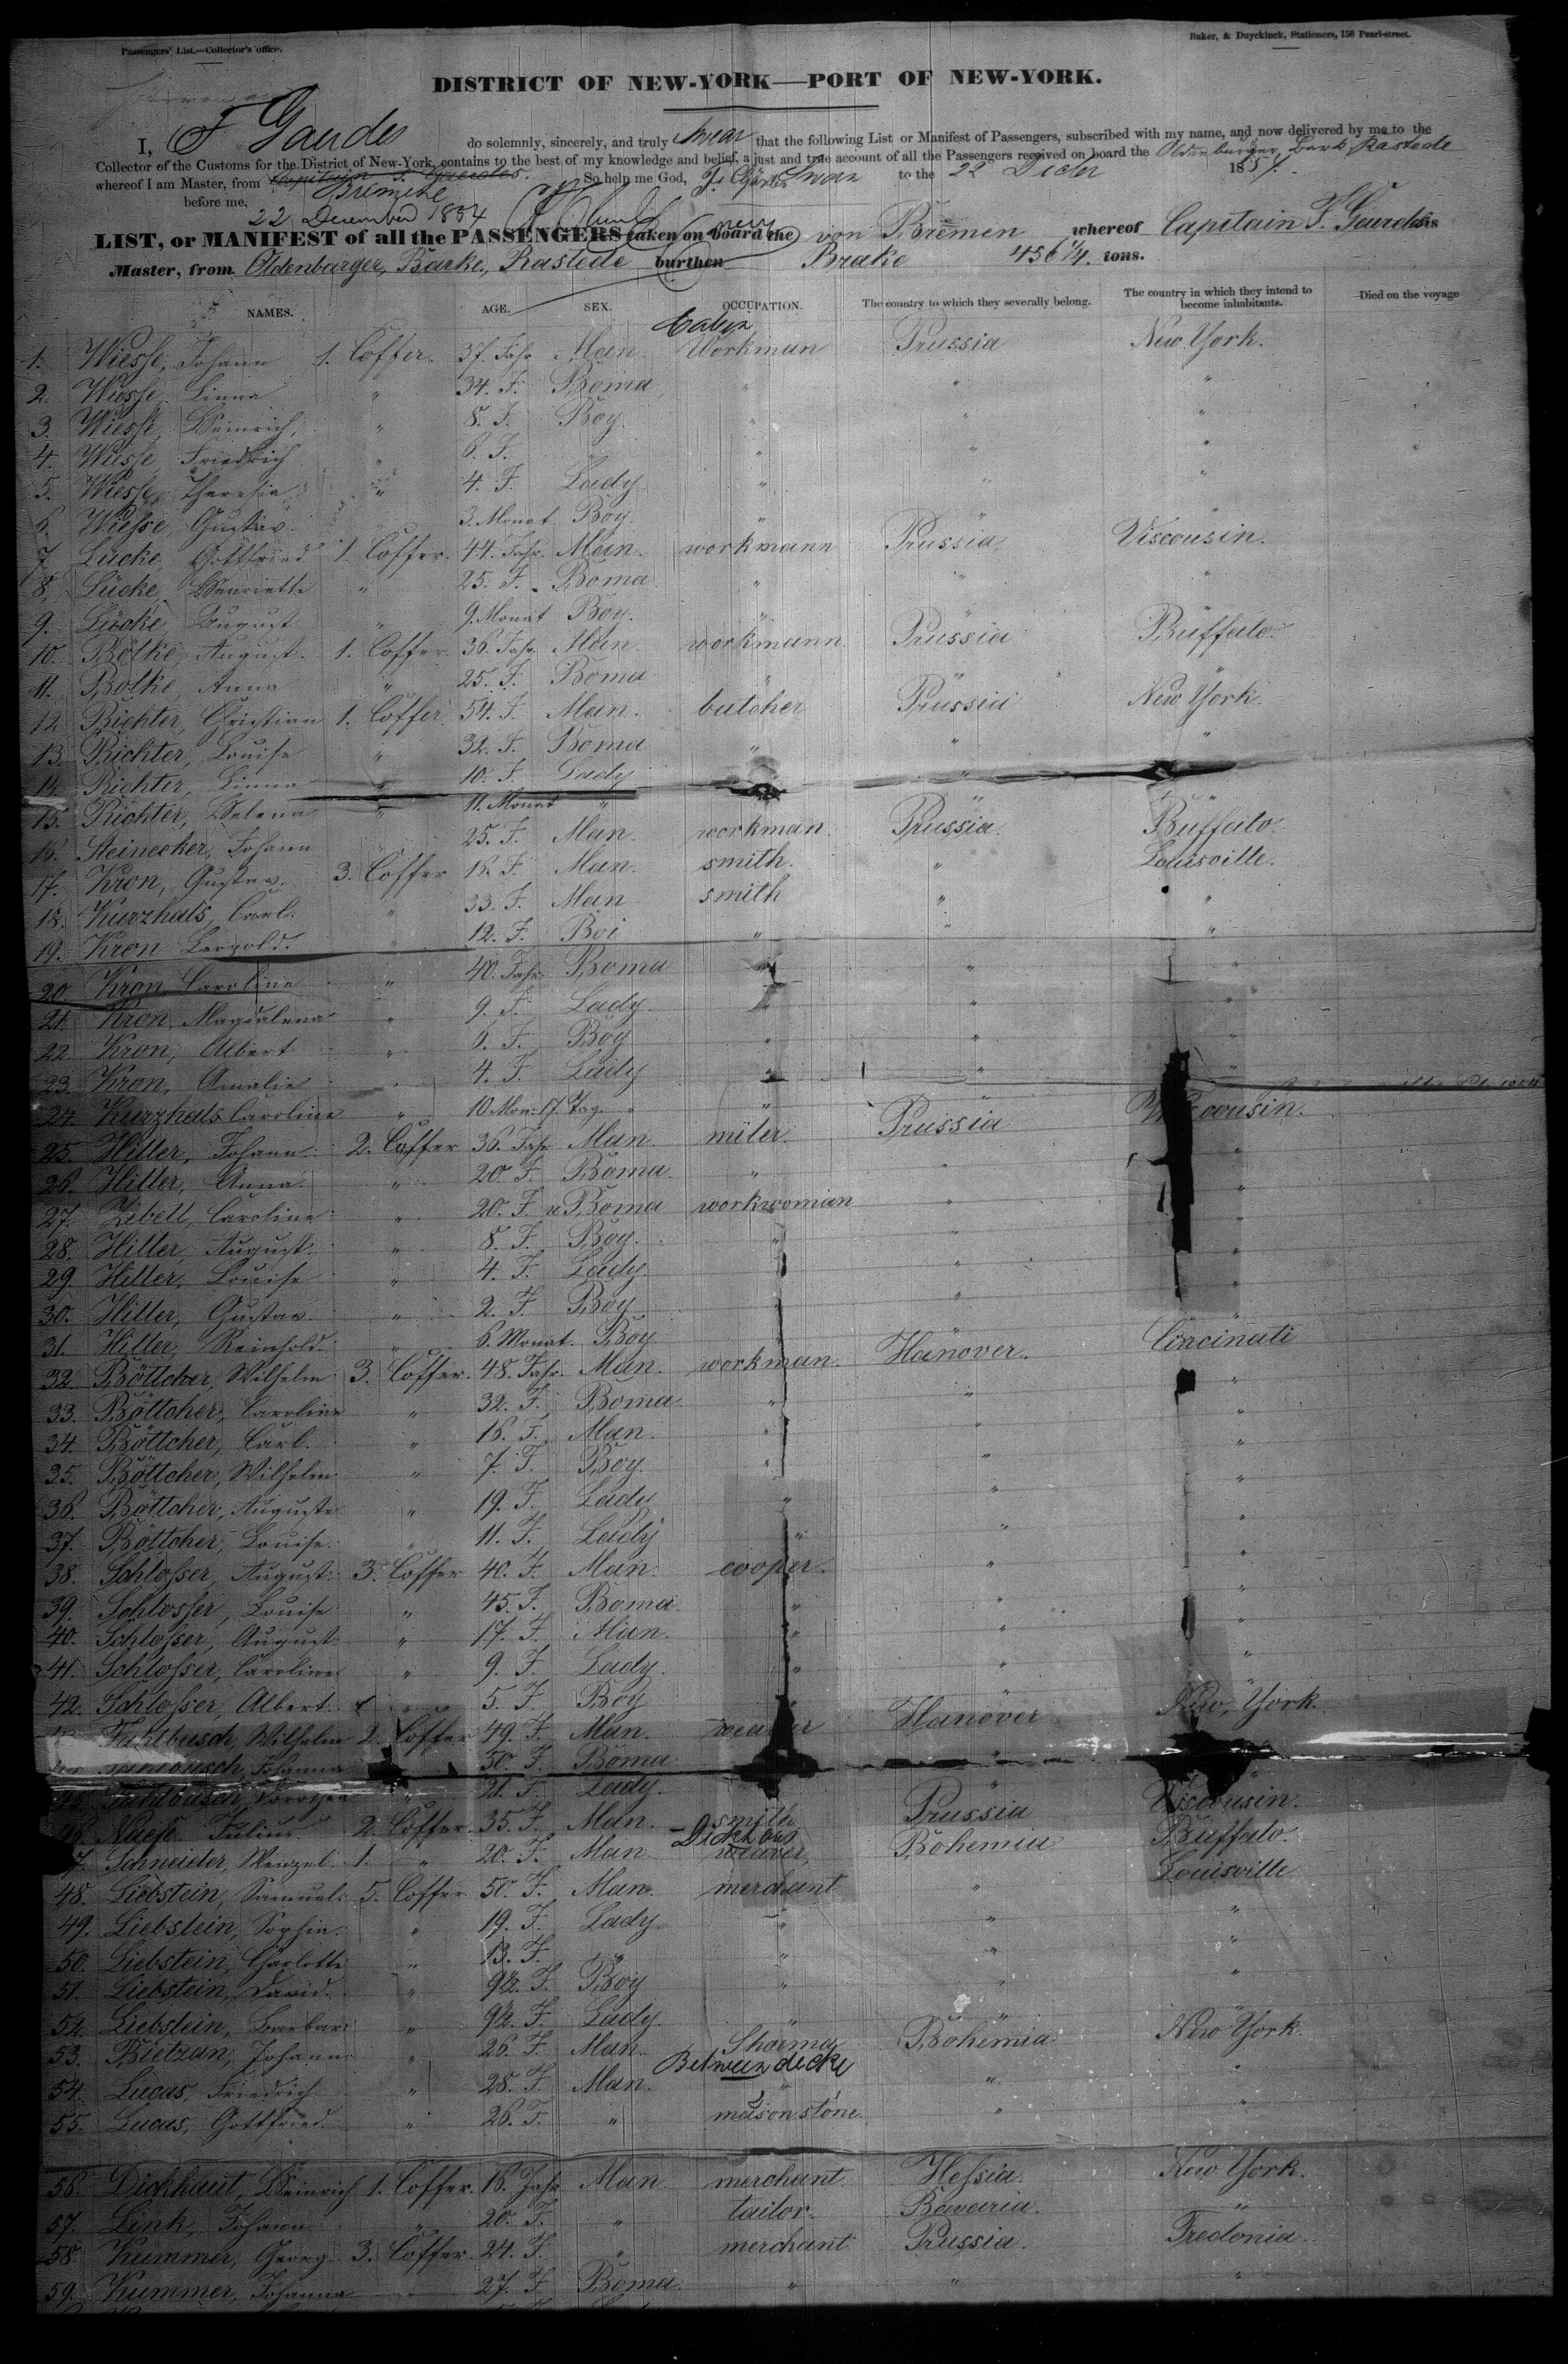 Passengers' List.—Collector's office.
Baker, & Duyckinck, Stationers, 158 Pearl-street.
DISTRICT OF NEW-YORK—PORT OF NEW-YORK.
I, F Gaudes do solemnly, sincerely, and truly swear that the following List or Manifest of Passengers, subscribed with my name, and now delivered by me to the
Collector of the Customs for the District of New-York, contains to the best of my knowledge and belief, a just and true account of all the Passengers received on board the Oldenburger Bark Rastede
whereof I am Master, from Capitain F. Gaerdes. So help me God, to the 22 Decbr 1854.
before me, Bremen
22 December 1854
LIST, or MANIFEST of all the PASSENGERS taken on board the von Bremen whereof Capitain F. Gaerdes is
Master, from Oldenburger, Barke, Rastede burthen Brake 456 1/4 tons.
NAMES. AGE. SEX. OCCUPATION. The country to which they severally belong. The country in which they intend to become inhabitants. Died on the voyage
Cabin
1. Wiesse, Johann 1. Coffer. 37. Jahr Man. Workman Prussia New York.
2. Wiesse, Linna " 34. J. Boma " " "
3. Wiesse, Heinrich, " 8. J. Boy. " " "
4. Wiesse, Friedrich " 6. J. " " " "
5. Wiesse, Theresia " 4. J. Lady " " "
6. Wiesse, Gustav. " 3. Monat Boy. " " "
7. Lücke, Gottfried 1. Coffer. 44. Jahr. Man. workmann Prussia Viscousin.
8. Lücke, Henriette " 25. J. Boma " " "
9. Lücke, August " 9. Monat Boy. " " "
10. Bölke, August. 1. Coffer 36. Jahr Man. workmann. Prussia Buffalo.
11. Bölke, Anna " 25. J. Boma " " "
12. Richter, Christian 1. Coffer 54. J. Man. butcher Prussia New York.
13. Richter, Louise " 32. J. Boma " " "
14. Richter, Linna " 10. J. Lady " "
15. Richter, Helena " 11. Monat " " "
16. Steinecker, Johann 25. J. Man workman. Prussia. Buffalo.
17. Kron, Gustav. 3. Coffer 18. J. Man. smith. " Louisville.
18. Kurzhals, Carl. " 33. J. Man smith " "
19. Kron Leopold. " 12. J. Boi " " "
20. Kron Caroline " 40. Jahr. Boma " " "
21. Kron, Magdalena " 9. J. Lady. " " "
22. Kron, Albert " 6. J. Boy " " "
23. Kron, Amalie " 4. J. Lady " " "
24. Kurzhals Caroline " 10 Mon: 17. Tag. " " "
25. Hiller, Johann. 2. Coffer 36. Jahr Man. miler. Prussia Viscousin.
26. Hiller, Anna. " 20. J. Boma. " " "
27. Zibell, Caroline " 20. J. u Boma workwoman " "
28. Hiller, August. " 8. J. Boy. " " "
29. Hiller, Louise " 4. J. Lady. " "
30. Hiller, Gustav " 2. J. Boy " "
31. Hiller, Reinhold. " 6. Monat. Boy. " "
32. Böttcher, Wilhelm 3. Coffer. 48. Jahr. Man. workman. Hanover. Cincinati
33. Böttcher, Caroline " 32. J. Boma. " " "
34. Böttcher, Carl. " 16. J. Man. " " "
35. Böttcher, Wilhelm " 7. J. Boy. " " "
36. Böttcher, Auguste " 19. J. Lady " " "
37. Böttcher, Louise. " 11. J. Lady " " "
38. Schlosser, August. 3. Coffer 40. J. Man. cooper. " "
39. Schlosser, Louise " 45. J. Boma. " " "
40. Schlosser, August. " 17. J. Man. " " "
41. Schlosser, Caroline " 9. J. Lady. " " "
42. Schlosser, Albert. " 5. J. Boy " "
Fuhlbusch, Wilhelm 2. Coffer 49. J. Man. Hanover New, York.
Johanna 50. J. Boma "
45. Fuhlbusch, Dorothea " 21. J. Lady. "
46. Julius. 2. Coffer. 35. J. Man. smith Prussia Viscousin.
7. Schneider, Wenzel. 1. " 20. J. Man. weaver, Bohemia Buffalo.
48. Liebstein, Samuel. 5. Coffer 50. J. Man. merchant " Louisville
49. Liebstein, Sophia. " 19. J. Lady. " " "
50. Liebstein, Charlotte " 13. J. " " " "
51. Liebstein, David. " 9½. J. Boy " " "
52. Liebstein, Barbar: " 9½. J. Lady. " "
53. Bietzan, Johann " 26. J. Man. Shoema Bohemia New York.
Between decke
54. Lucas, Friedrich. " 28. J. Man. " " "
55. Lucas, Gottfried. 26. J. " mason stone. " "
56. Dickhaut, Heinrich 1. Coffer. 16. Jahr Man. merchant. Hessia. New York.
57. Link, Johann " 20. J. " tailor. Bavaria. "
58. Kummer, Georg. 3. Coffer. 24. J. " merchant Prussia. Fredonia.
59. Kummer, Johanna " 27. J. Boma. " " "